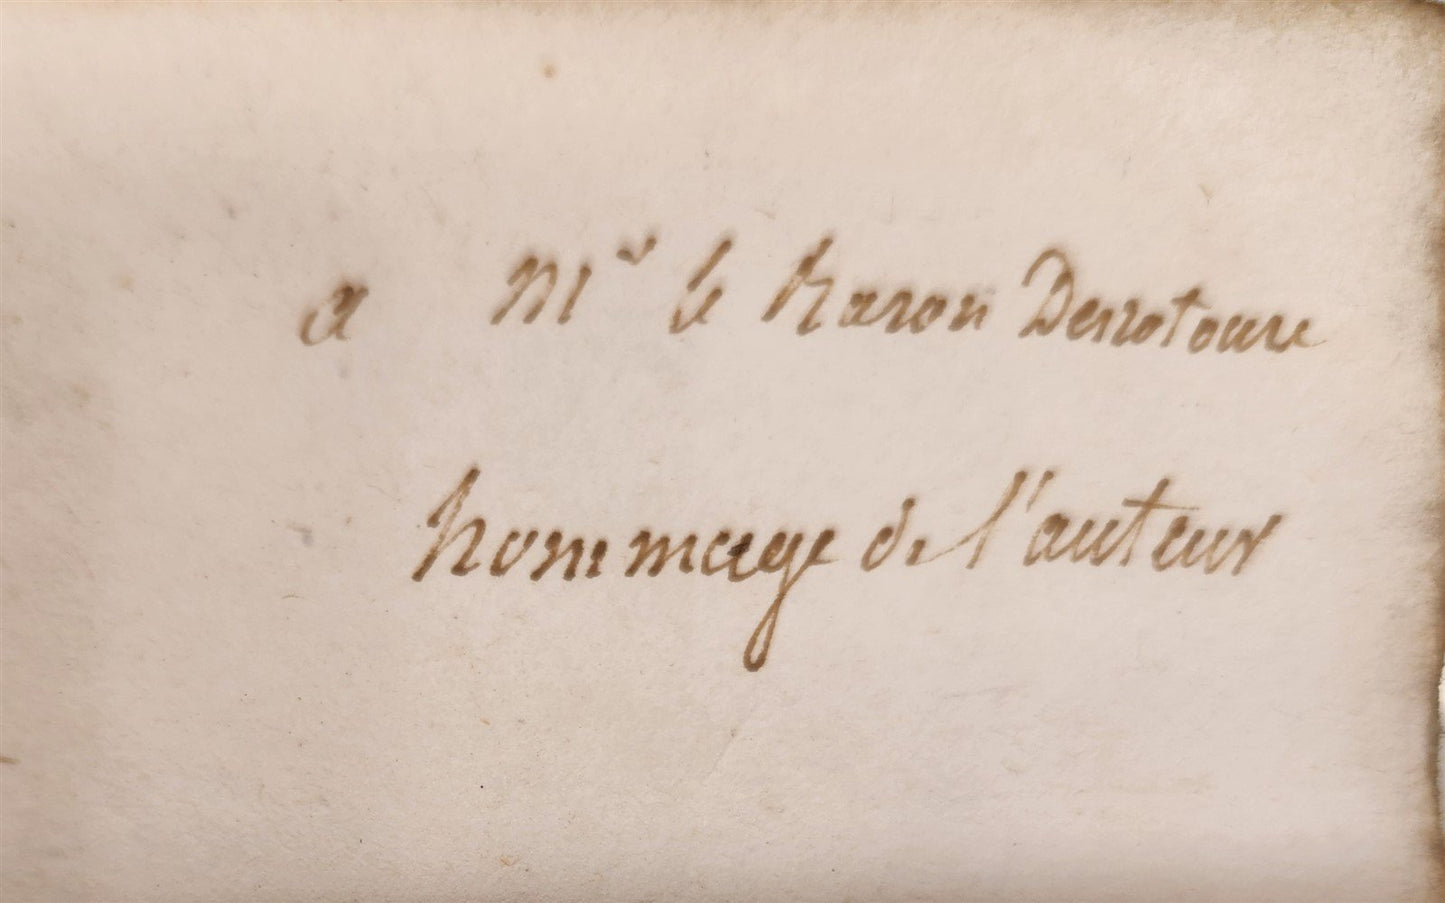 a Mr le baron Desrotours
hommage de l'auteur